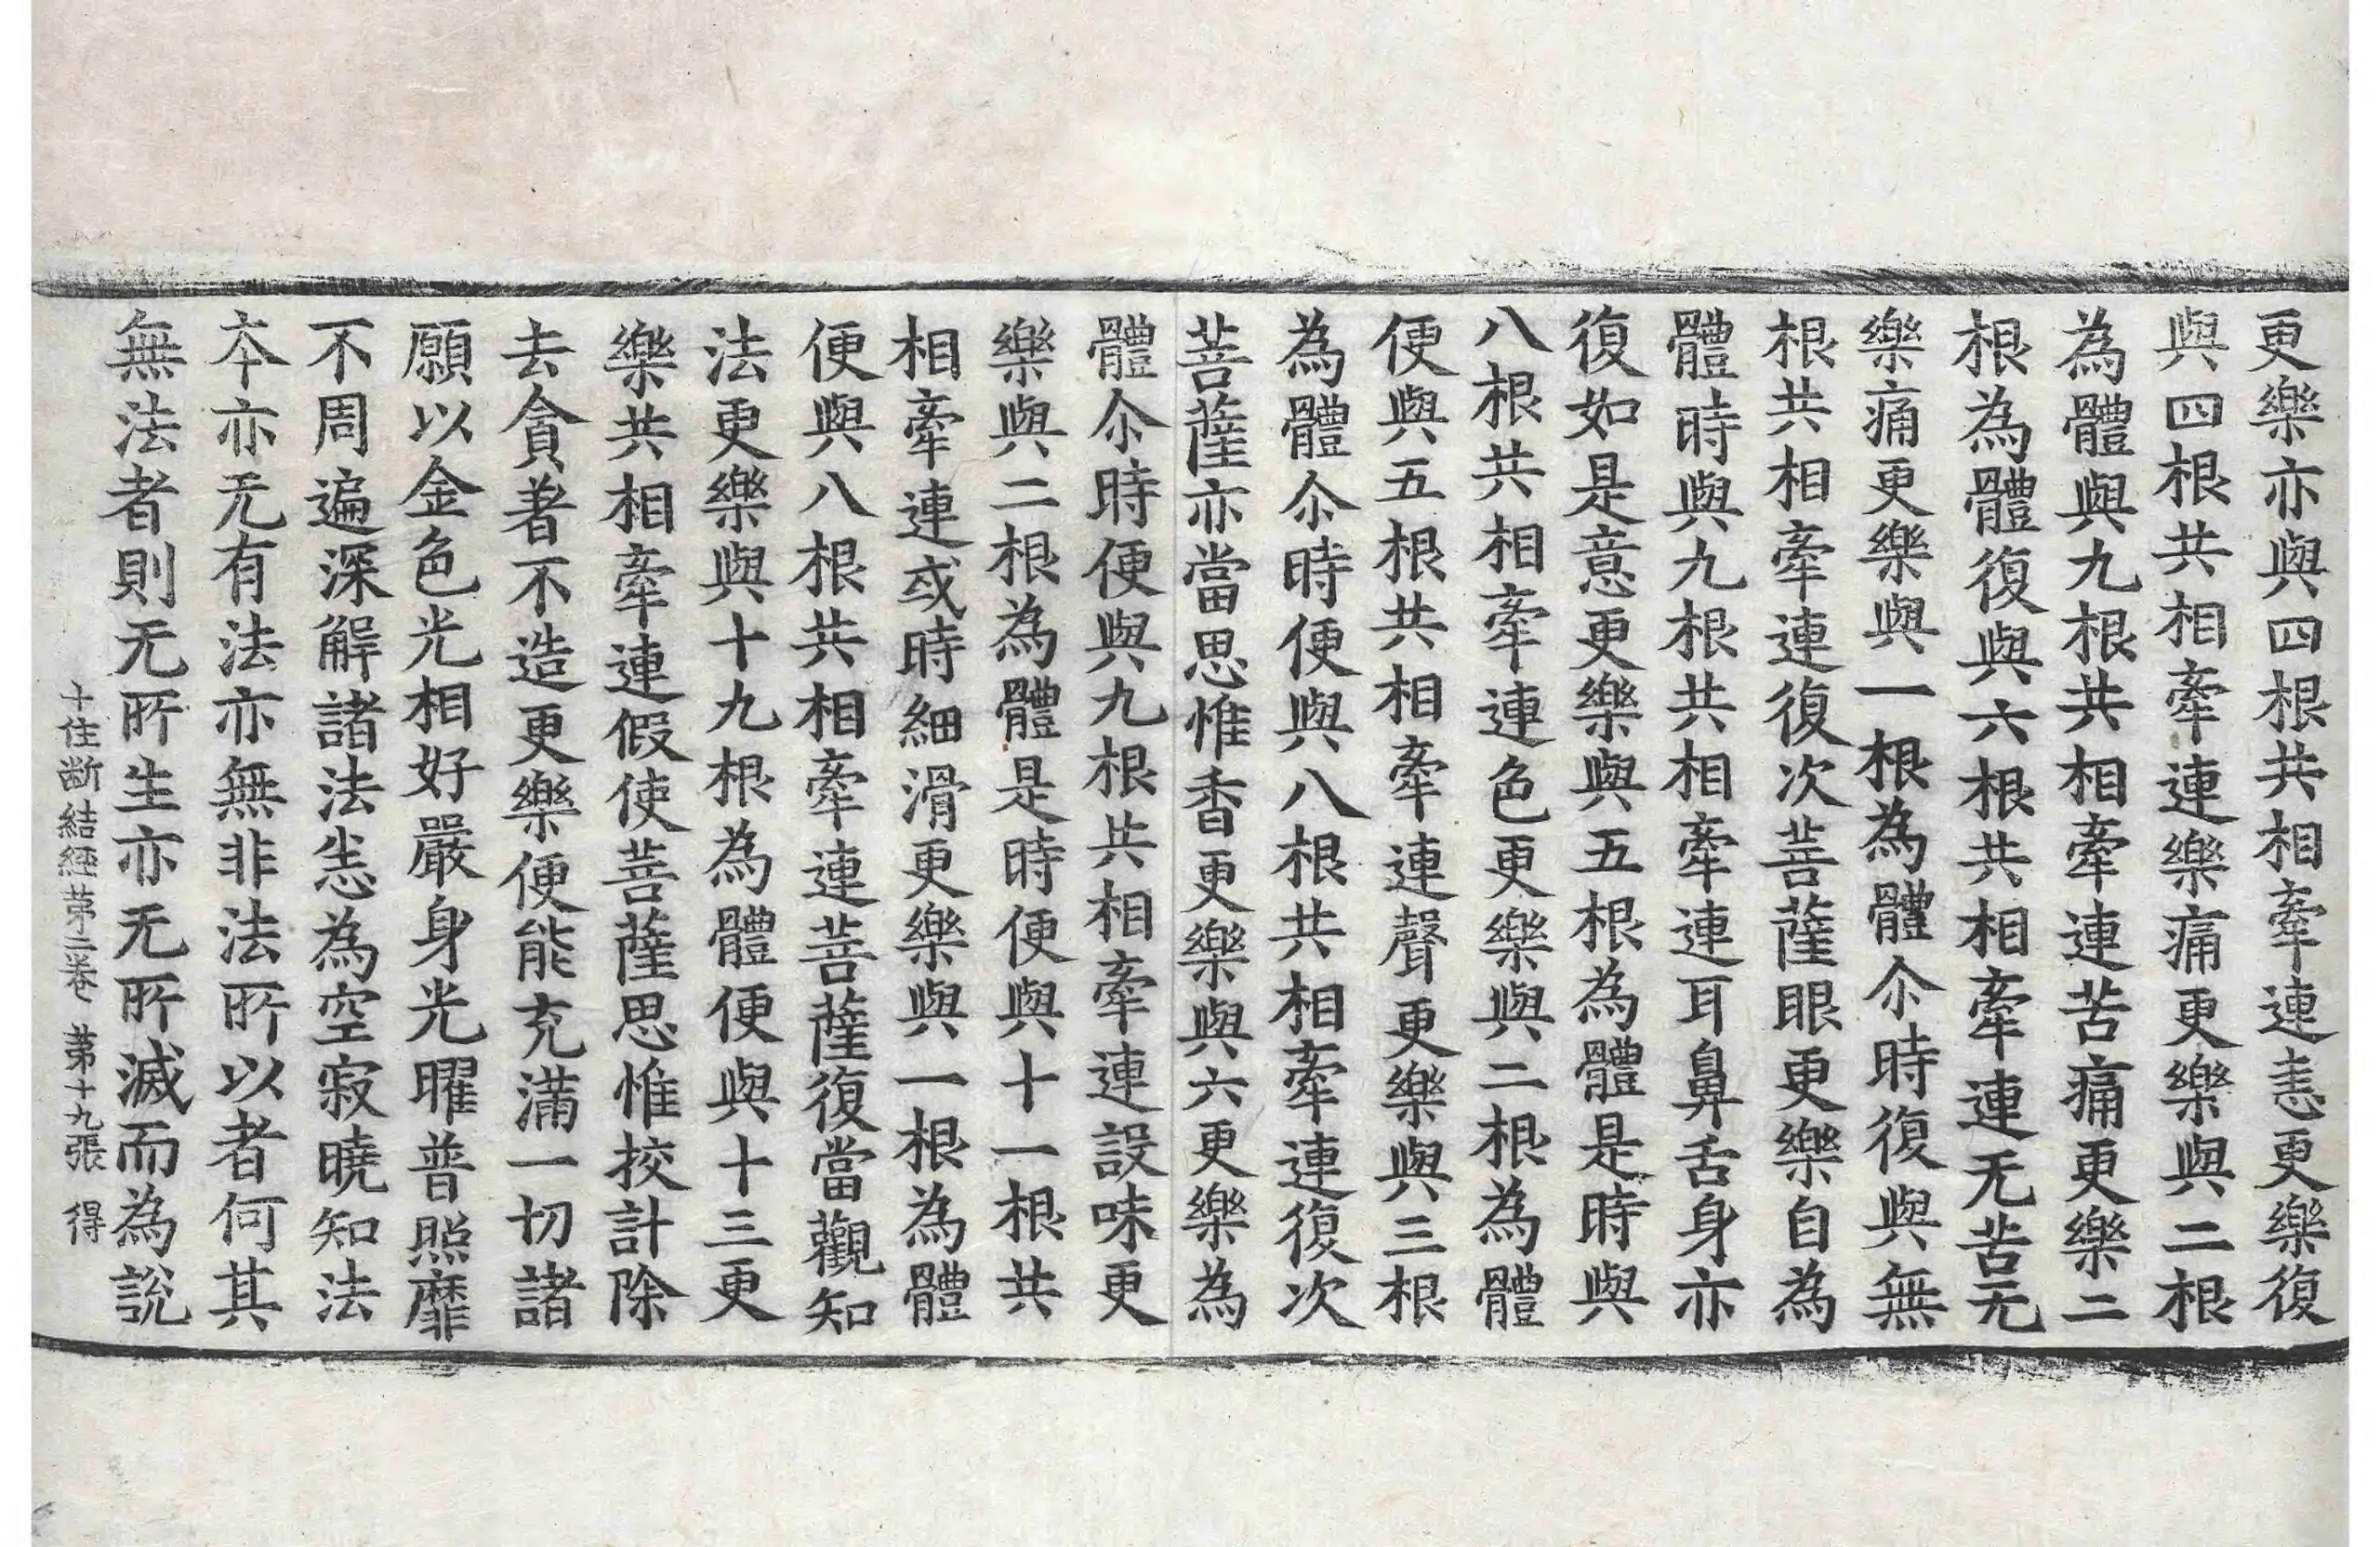 更樂亦與四根共相牽連恚更樂復
與四根共相牽連樂痛更樂與二根
為體與九根共相牽連苦痛更樂二
根為體復與六根共相牽連无苦无
樂痛更樂與一根為體尒時復與無
根共相牽連復次菩薩眼更樂自為
體時與九根共相牽連耳鼻舌身亦
復如是意更樂與五根為體是時與
八根共相牽連色更樂與二根為體
便與五根共相牽連聲更樂與三根
為體尒時便與八根共相牽連復次
菩薩亦當思惟香更樂與六更樂為
體尒時便與九根共相牽連設味更
樂與二根為體是時便與十一根共
相牽連或時細滑更樂與一根為體
便與八根共相牽連菩薩復當觀知
法更樂與十九根為體便與十三更
樂共相牽連假使菩薩思惟挍計除
去貪著不造更樂便能充滿一切諸
願以金色光相好嚴身光曜普照靡
不周遍深解諸法恙為空寂曉知法
本亦无有法亦無非法所以者何其
無法者則无所生亦无所滅而為說
十住斷結經第二卷 第十九張 得